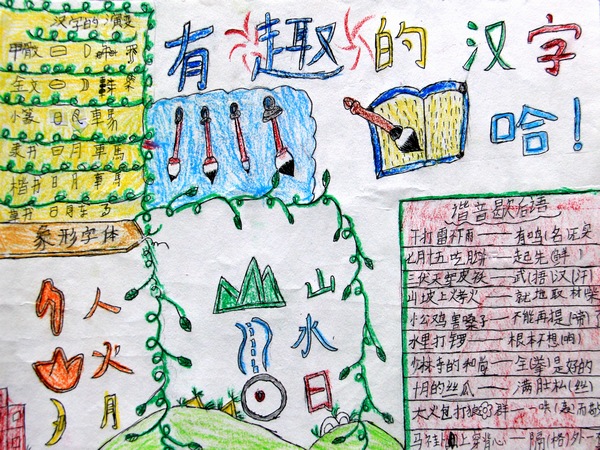 有趣的汉字
哈！
汉字的演变
甲骨文 日
金文
小篆 日 車 易
隶书 日 月 車 馬
楷书 日 月 車
草书 日
象形字体
人
火
月
山
水
日
谐音歇后语
干打雷不下雨——有鸣(名)无实
七月十五吃月饼——起先(鲜)
三伏天穿皮袄——武(捂)汉(汗)
山坡上烤火——就地取材(柴)
小公鸡害嗓子——不能再提(啼)了
水里打锣——根本不想(响)
少林寺的和尚——全拳是好的
十月的丝瓜——满肚私(丝)
大火包打
马褂上穿背心——隔(格)外一